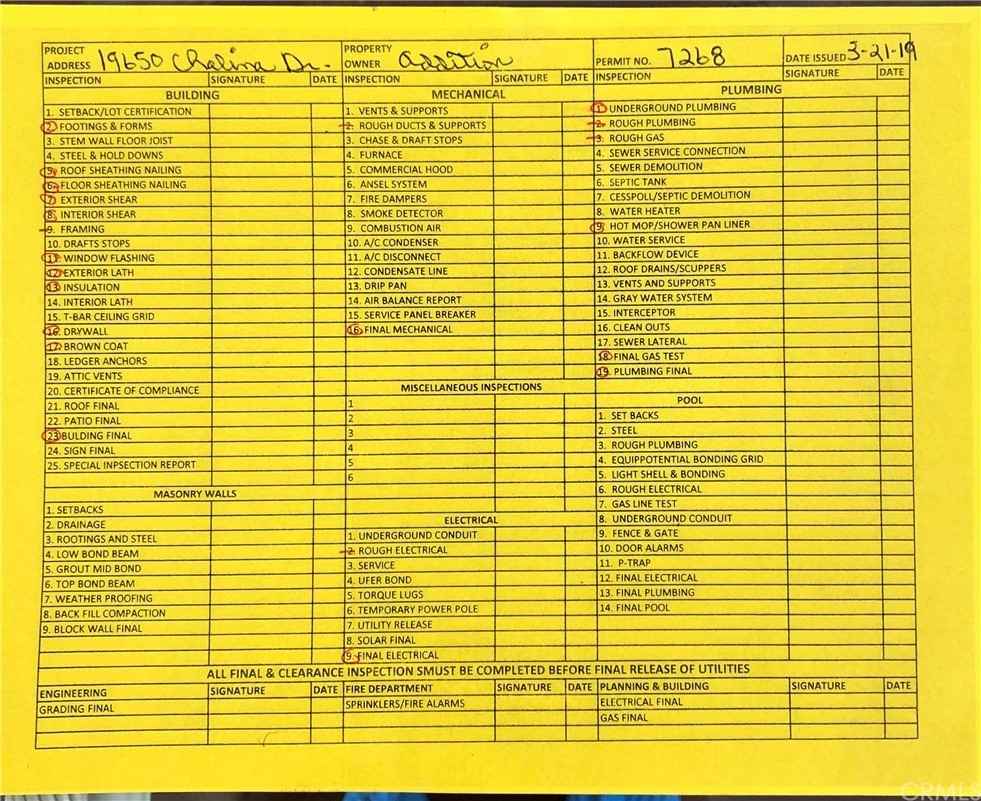 PROJECT ADDRESS 19650 Chalina Dr. PROPERTY OWNER Addition PERMIT NO. 7268 DATE ISSUED 3-21-19
INSPECTION SIGNATURE DATE INSPECTION SIGNATURE DATE INSPECTION SIGNATURE DATE
BUILDING
1. SETBACK/LOT CERTIFICATION
2. FOOTINGS & FORMS
3. STEM WALL FLOOR JOIST
4. STEEL & HOLD DOWNS
5. ROOF SHEATHING NAILING
6. FLOOR SHEATHING NAILING
7. EXTERIOR SHEAR
8. INTERIOR SHEAR
9. FRAMING
10. DRAFTS STOPS
11. WINDOW FLASHING
12. EXTERIOR LATH
13. INSULATION
14. INTERIOR LATH
15. T-BAR CEILING GRID
16. DRYWALL
17. BROWN COAT
18. LEDGER ANCHORS
19. ATTIC VENTS
20. CERTIFICATE OF COMPLIANCE
21. ROOF FINAL
22. PATIO FINAL
23 BULDING FINAL
24. SIGN FINAL
25. SPECIAL INPSECTION REPORT
MASONRY WALLS
1. SETBACKS
2. DRAINAGE
3. ROOTINGS AND STEEL
4. LOW BOND BEAM
5. GROUT MID BOND
6. TOP BOND BEAM
7. WEATHER PROOFING
8. BACK FILL COMPACTION
9. BLOCK WALL FINAL
MECHANICAL
1. VENTS & SUPPORTS
2. ROUGH DUCTS & SUPPORTS
3. CHASE & DRAFT STOPS
4. FURNACE
5. COMMERCIAL HOOD
6. ANSEL SYSTEM
7. FIRE DAMPERS
8. SMOKE DETECTOR
9. COMBUSTION AIR
10. A/C CONDENSER
11. A/C DISCONNECT
12. CONDENSATE LINE
13. DRIP PAN
14. AIR BALANCE REPORT
15. SERVICE PANEL BREAKER
16 FINAL MECHANICAL
MISCELLANEOUS INSPECTIONS
1
2
3
4
5
6
ELECTRICAL
1. UNDERGROUND CONDUIT
2. ROUGH ELECTRICAL
3. SERVICE
4. UFER BOND
5. TORQUE LUGS
6. TEMPORARY POWER POLE
7. UTILITY RELEASE
8. SOLAR FINAL
9. FINAL ELECTRICAL
PLUMBING
1 UNDERGROUND PLUMBING
2. ROUGH PLUMBING
3. ROUGH GAS
4. SEWER SERVICE CONNECTION
5. SEWER DEMOLITION
6. SEPTIC TANK
7. CESSPOLL/SEPTIC DEMOLITION
8. WATER HEATER
9. HOT MOP/SHOWER PAN LINER
10. WATER SERVICE
11. BACKFLOW DEVICE
12. ROOF DRAINS/SCUPPERS
13. VENTS AND SUPPORTS
14. GRAY WATER SYSTEM
15. INTERCEPTOR
16. CLEAN OUTS
17. SEWER LATERAL
18 FINAL GAS TEST
19. PLUMBING FINAL
POOL
1. SET BACKS
2. STEEL
3. ROUGH PLUMBING
4. EQUIPPOTENTIAL BONDING GRID
5. LIGHT SHELL & BONDING
6. ROUGH ELECTRICAL
7. GAS LINE TEST
8. UNDERGROUND CONDUIT
9. FENCE & GATE
10. DOOR ALARMS
11. P-TRAP
12. FINAL ELECTRICAL
13. FINAL PLUMBING
14. FINAL POOL
ALL FINAL & CLEARANCE INSPECTION SMUST BE COMPLETED BEFORE FINAL RELEASE OF UTILITIES
ENGINEERING SIGNATURE DATE FIRE DEPARTMENT SIGNATURE DATE PLANNING & BUILDING SIGNATURE DATE
GRADING FINAL SPRINKLERS/FIRE ALARMS ELECTRICAL FINAL
GAS FINAL
CRMLS